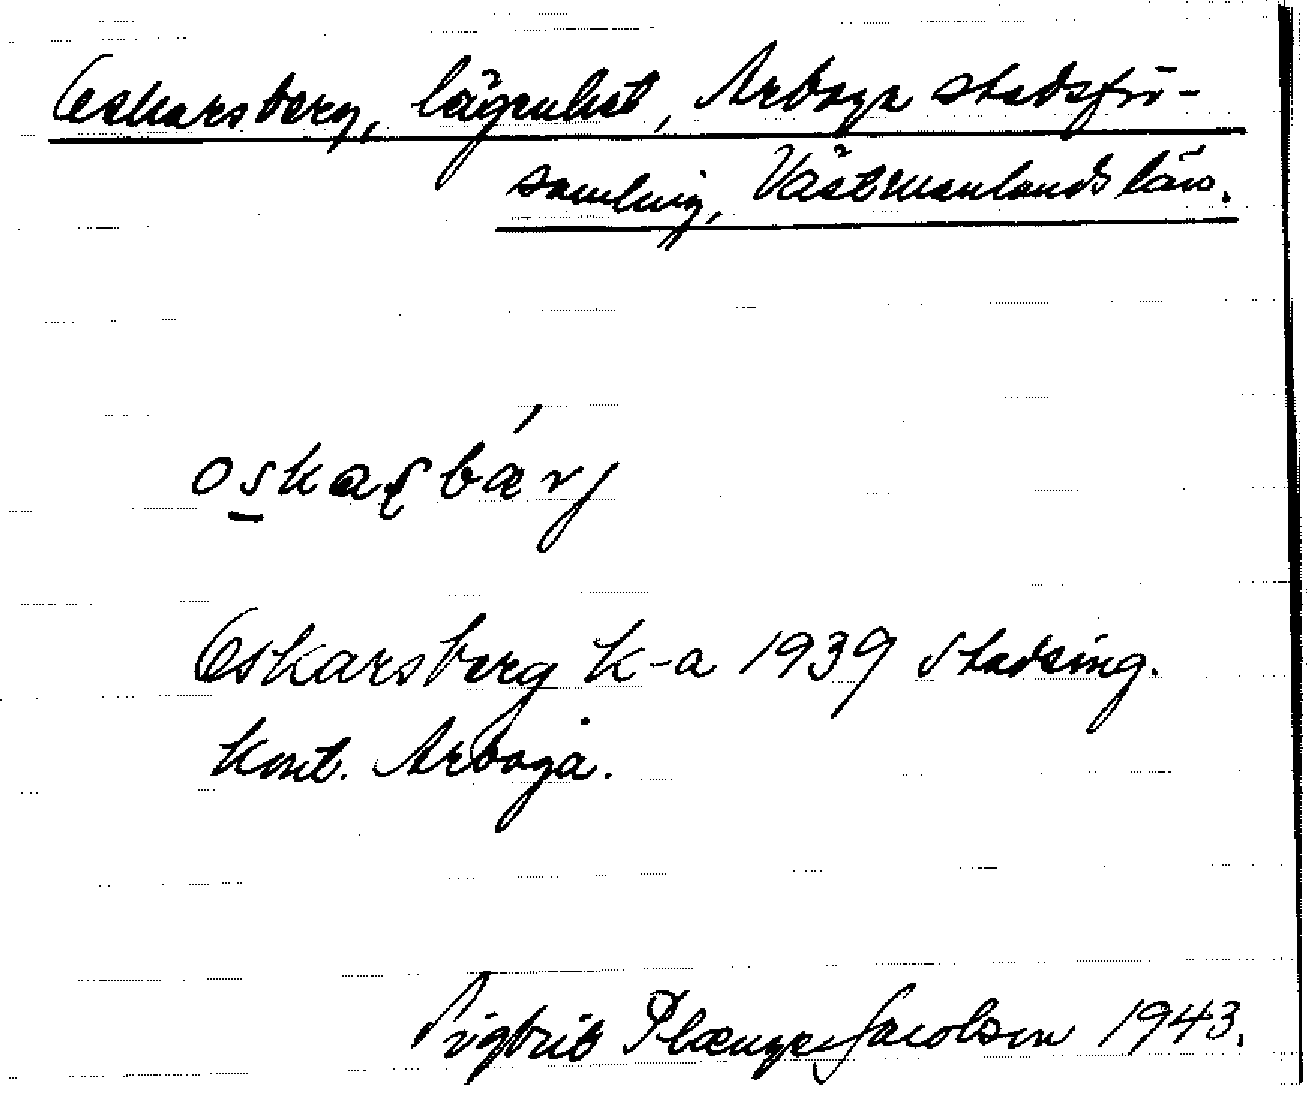 Oskarsberg, lägenhet, Arboga stadsför-
samling, Västmanlands län.
oskaʂbárj
Oskarsberg k-a 1939 Stadsing.
kont. Arboga.
Sigbrit Plænge Jacobson 1943.